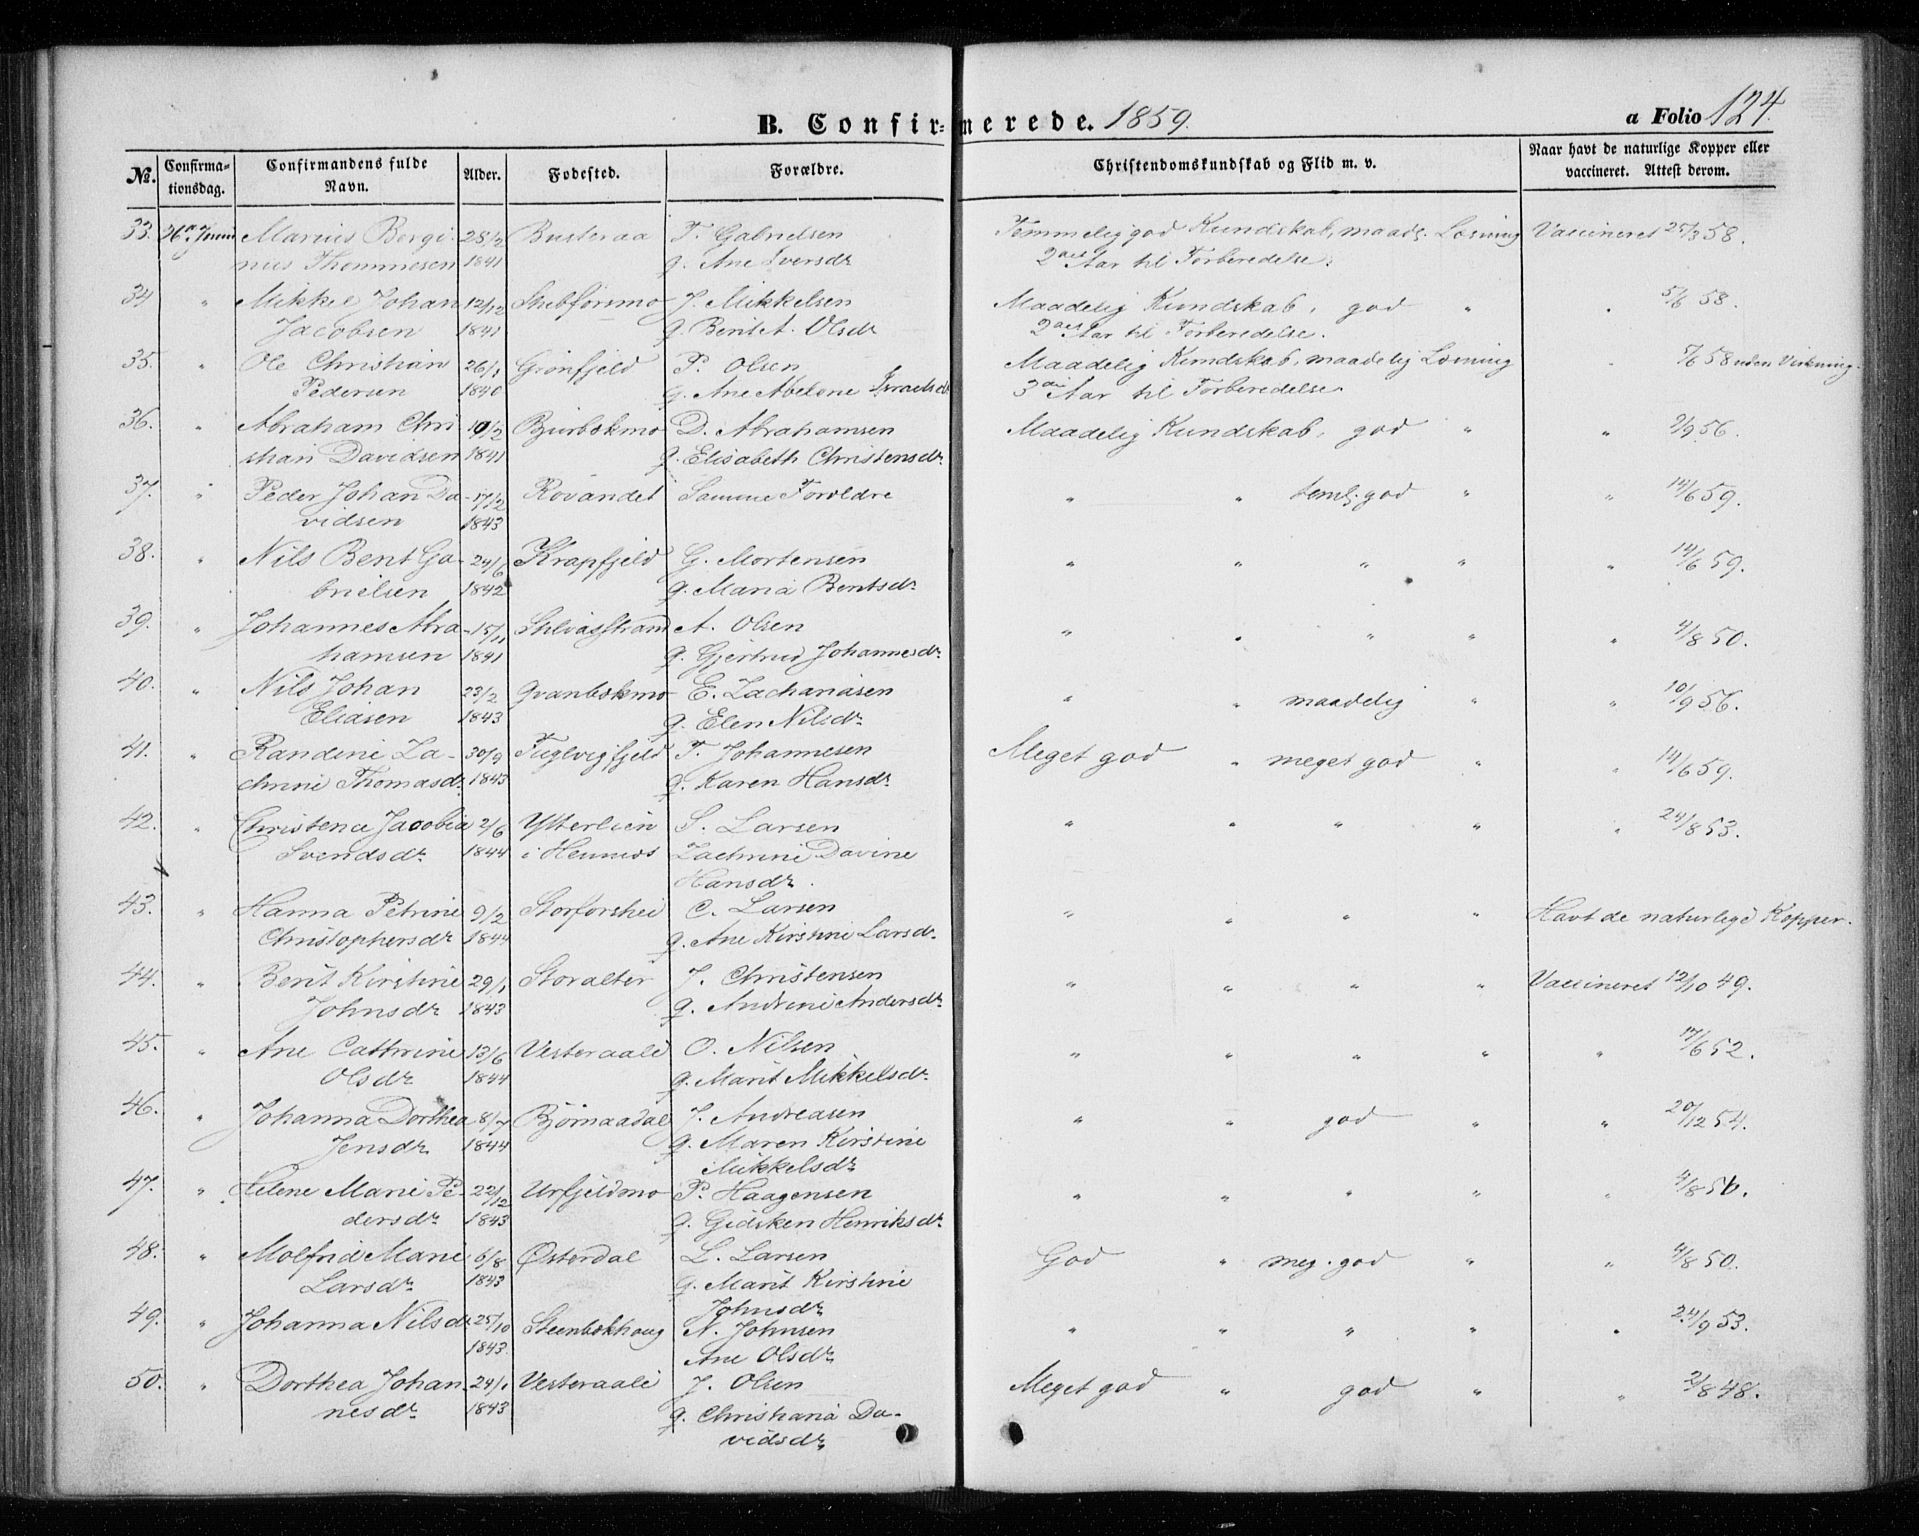 B. Confirmerede. 1859. a Folio 124.
No. Confirmationsdag. Confirmandens fulde Navn. Alder. Fodested. Forældre. Christendomskundskab og Flid m. v. Naar havt de naturlige Kopper eller vaccineret. Attest derom.
33. 26. Juni Marius Bergi- 28/2 Busteraa T. Gabrielsen Temmelig god Kundskab, maadl. Læsning Vaccineret 25/3 58.
nus Thommesen 1841 q. Ane Iversdr 2 Aar til Forberedelse.
34 " Mikkel Johan 12/12 J. Mikkelsen Maadelig Kundskab, god " " 5/6 58.
Jacobsen 1841 q. Berit A. Olsdr 2 Aar til Forberedelse.
35. " Ole Christian 26/1 Grönfjeld P. Olsen Maadelig Kundskab, maadelig Læsning " 7/6 58 uden Virkning.
Pedersen 1840 q. Ane Abelone Israelsdr 3 Aar til Forberedelse
36. " Abraham Chri 10/2 Bjurbekmo D. Abrahamsen Maadelig Kundskab, god " " 2/9 56.
stian Davidsen 1841 q. Elisabeth Christensdr.
37. " Peder Johan Da- 17/12 Rovandet Samme Foreldre " " teml. god " " 14/6 59.
vidsen 1843
38. " Nils Bent Ga- 24/6 Krapfjeld G. Mortensen " " " " 14/6 59.
brielsen 1842 q. Maria Bentsdr.
39. " Johannes Abra- 15/11 A. Olsen " " " " " 4/8 50.
hamsen 1841 q. Gjertrud Johannesdr
40. " Nils Johan 23/2 Qvanbekmo E. Zachariasen " " maadelig " " 10/9 56.
Eliasen 1843 q. Elen Nilsdr
41. " Randine Za- 30/9 Fuglvigfjeld T. Johannesen Meget god " meget god " " 14/6 59.
chrine Thomasdr. 1843 q. Karen Hansdr
42. " Christena Jacobea 2/6 Ytterlien S. Larsen " " " " " 24/8 53.
Svendsdr 1844 i Hemnes Zachrine Davine
Hansdr.
43. " Hanna Petrine 9/2 Storforshei C. Larsen " " " " Havt de naturlige Kopper.
Christophersdr 1844 q. Ane Kirstine Larsdr.
44. " Berit Kirstine 29/1 Storalter J. Christensen " " " " Vaccineret 12/10 49.
Johnsdr 1843 q. Andrine Andersdr
45. " Ane Cathrine 13/6 Vesteraali O. Nilsen " " " " " 17/6 52.
Olsdr 1844 q. Marit Mikkelsdr.
46. " Johanna Dorthea 8/7 Björnaadal J. Andreasen " " god " " 20/12 54.
Jensdr. 1844 q. Maren Kirstine
Mikkelsdr
47. " Helene Marie Pe- 22/12 Urfjeldmo P. Haagensen " " " " " 4/8 50.
dersdr 1843 q. Gidsken Henriksdr
48. " Molfrid Marie 6/8 Østerdal L. Larsen God " meg. god " " 4/8 50.
Larsdr 1843 q. Marit Kirstine
Johnsdr
49. " Johanna Nilsdr 25/10 Steenbekhoug N. Johnsen " " " " " 24/9 53.
1843. Ane Olsdr
50. " Dorthea Johan- 24/1 Vesteraali J. Olsen Meget god " god " " 2/8 48.
nesdr. 1843 q. Christiana Da-
vidsdr